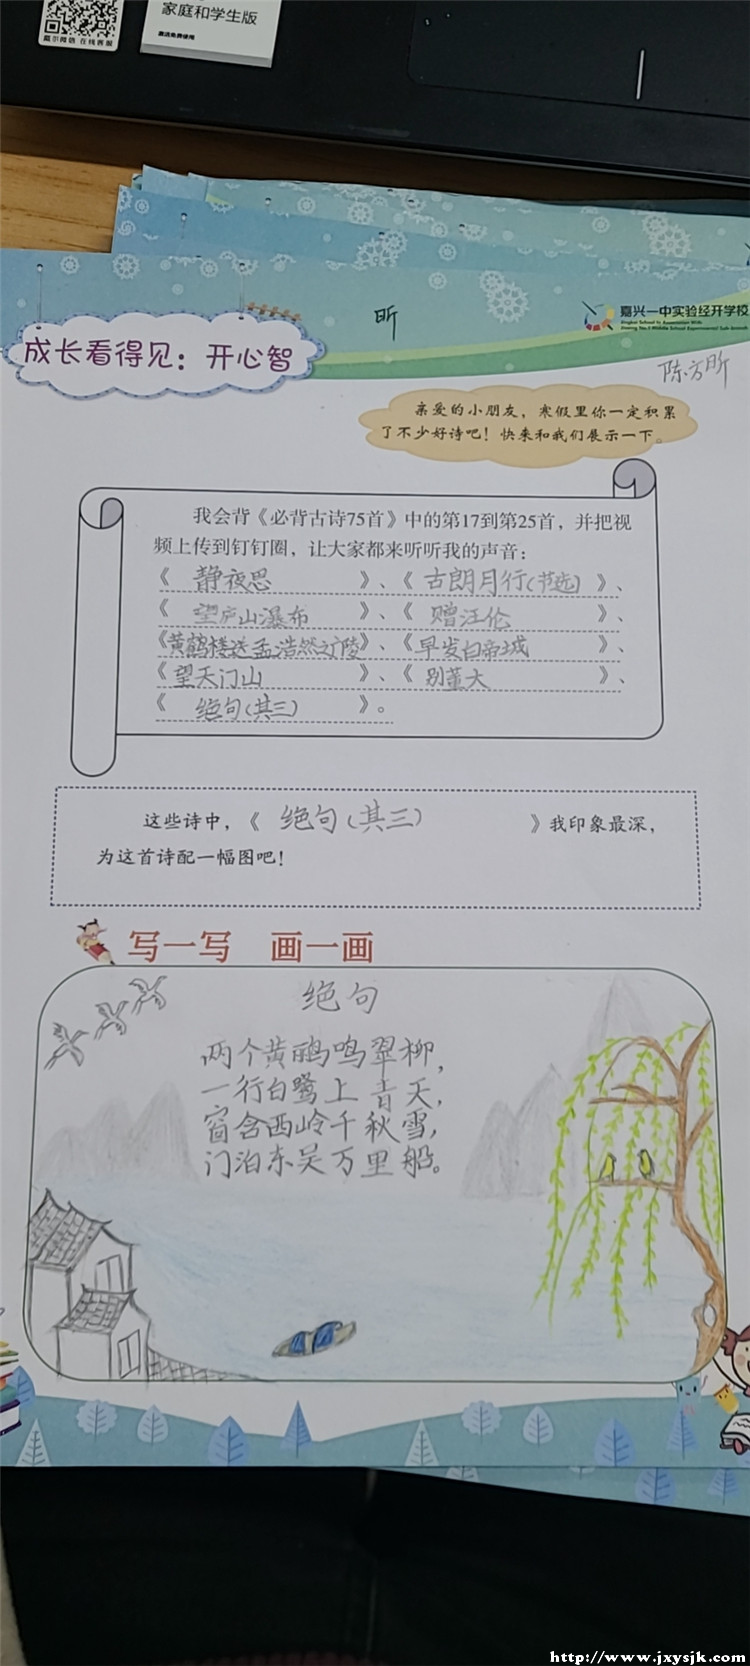 家庭和学生版
激活免费使用
嘉尔微信 在线客服
昕
嘉兴一中实验经开学校
成长看得见：开心智
陈方昕
亲爱的小朋友，寒假里你一定积累
了不少好诗吧！快来和我们展示一下。
我会背《必背古诗75首》中的第17到第25首，并把视
频上传到钉钉圈，让大家都来听听我的声音：
《 静夜思 》、《 古朗月行(节选) 》、
《 望庐山瀑布 》、《 赠汪伦 》、
《黄鹤楼送孟浩然之广陵》、《早发白帝城 》、
《望天门山 》、《 别董大 》、
《 绝句(其三) 》。
这些诗中，《 绝句(其三) 》我印象最深，
为这首诗配一幅图吧！
写一写 画一画
绝句
两个黄鹂鸣翠柳，
一行白鹭上青天，
窗含西岭千秋雪，
门泊东吴万里船。
http://www.jxysjk.com